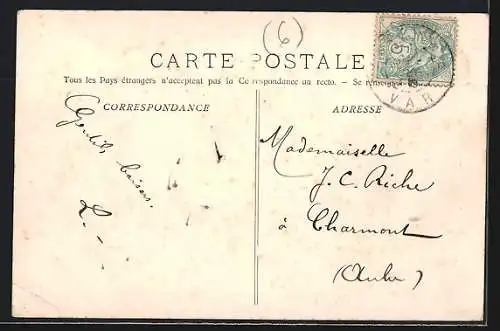 (6)
CARTE POSTALE
Tous les Pays étrangers n'acceptent pas la Correspondance au recto. — Se renseigner
CORRESPONDANCE
ADRESSE
baisers.
L. —
Mademoiselle
J. C. Riche
à Charmont
(Aube)
5
VAR